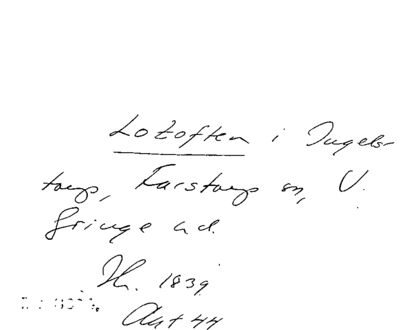 Lotoften i Ingels-
torp, Farstorps sn, V.
Göinge hd.
Th. 1839
Akt 44